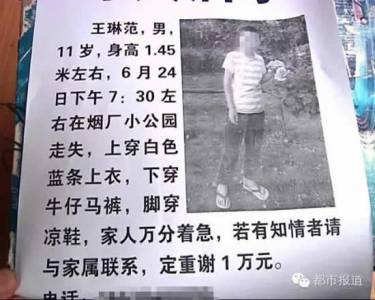 王琳范，男，
11岁，身高1.45
米左右，6月24
日下午7：30左
右在烟厂小公园
走失，上穿白色
蓝条上衣，下穿
牛仔马裤，脚穿
凉鞋，家人万分着急，若有知情者请
与家属联系，定重谢1万元。
电话：
都市报道